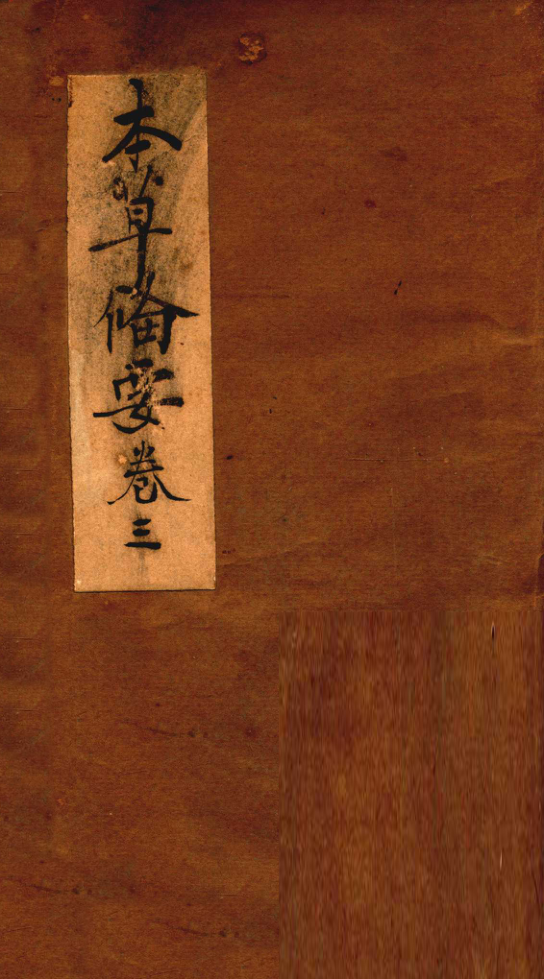 本草俻要卷三